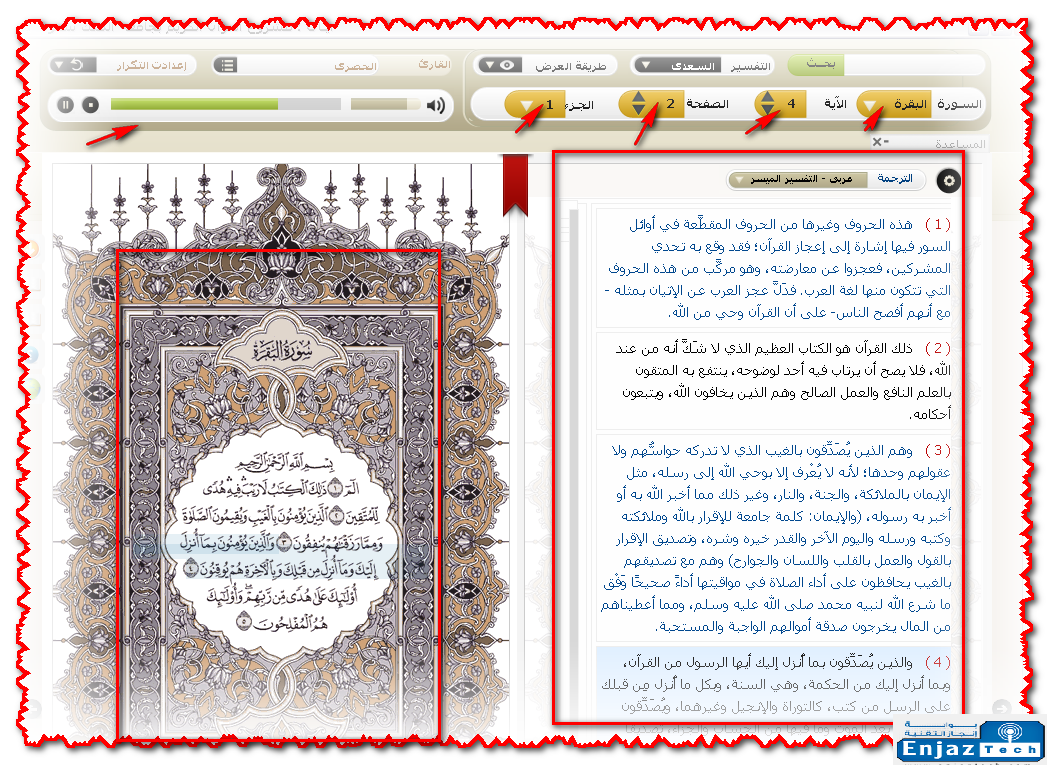 بحث
التفسير السعدى
طريقة العرض
القارئ الحصرى
إعدادت التكرار
السورة البقرة
الآية 4
الصفحة 2
الجزء 1
المساعدة
الترجمة عربى - التفسير الميسر
(1) هذه الحروف وغيرها من الحروف المقطَّعة في أوائل
السور فيها إشارة إلى إعجاز القرآن؛ فقد وقع به تحدي
المشركين، فعجزوا عن معارضته، وهو مركَّب من هذه الحروف
التي تتكون منها لغة العرب. فدَلَّ عجز العرب عن الإتيان بمثله -
مع أنهم أفصح الناس- على أن القرآن وحي من الله.
(2) ذلك القرآن هو الكتاب العظيم الذي لا شَكَّ أنه من عند
الله، فلا يصح أن يرتاب فيه أحد لوضوحه، ينتفع به المتقون
بالعلم النافع والعمل الصالح وهم الذين يخافون الله، ويتبعون
أحكامه.
(3) وهم الذين يُصَدِّقون بالغيب الذي لا تدركه حواسُّهم ولا
عقولهم وحدها؛ لأنه لا يُعْرف إلا بوحي الله إلى رسله، مثل
الإيمان بالملائكة، والجنة، والنار، وغير ذلك مما أخبر الله به أو
أخبر به رسوله، (والإيمان: كلمة جامعة للإقرار بالله وملائكته
وكتبه ورسله واليوم الآخر والقدر خيره وشره، وتصديق الإقرار
بالقول والعمل بالقلب واللسان والجوارح) وهم مع تصديقهم
بالغيب يحافظون على أداء الصلاة في مواقيتها أداءً صحيحًا وَفْق
ما شرع الله لنبيه محمد صلى الله عليه وسلم، ومما أعطيناهم
من المال يخرجون صدقة أموالهم الواجبة والمستحبة.
(4) والذين يُصَدِّقون بما أُنزل إليك أيها الرسول من القرآن،
وبما أنزل إليك من الحكمة، وهي السنة، وبكل ما أُنزل مِن قبلك
على الرسل من كتب، كالتوراة والإنجيل وغيرهما، ويُصَدِّقون
سُورَةُ البَقَرَةِ
بِسْمِ اللَّهِ الرَّحْمَٰنِ الرَّحِيمِ
الٓمٓ ١ ذَٰلِكَ الْكِتَٰبُ لَا رَيْبَ فِيهِ هُدًى
لِّلْمُتَّقِينَ ٢ الَّذِينَ يُؤْمِنُونَ بِالْغَيْبِ وَيُقِيمُونَ الصَّلَوٰةَ
وَمِمَّا رَزَقْنَٰهُمْ يُنفِقُونَ ٣ وَالَّذِينَ يُؤْمِنُونَ بِمَا أُنزِلَ
إِلَيْكَ وَمَا أُنزِلَ مِن قَبْلِكَ وَبِالْآخِرَةِ هُمْ يُوقِنُونَ ٤
أُولَٰئِكَ عَلَىٰ هُدًى مِّن رَّبِّهِمْ وَأُولَٰئِكَ
هُمُ الْمُفْلِحُونَ ٥
بوابة
إنجاز التقنية
Enjaz Tech